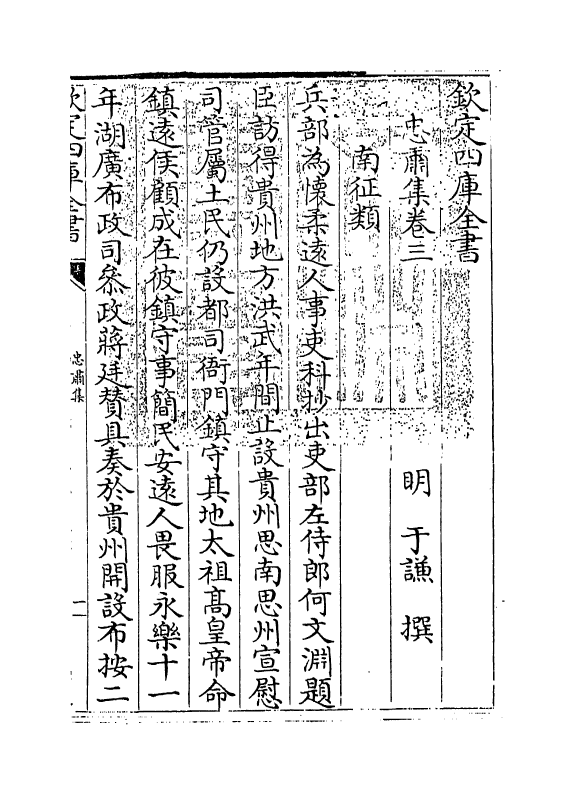 欽定四庫全書
忠肅集卷三
明 于謙 撰
南征類
兵部為懷柔遠人事吏科抄出吏部左侍郎何文淵題
臣訪得貴州地方洪武年間止設貴州思南思州宣慰
司管屬土民仍設都司衙門鎮守其地太祖髙皇帝命
鎮遠侯顧成在彼鎮守事簡民安遠人畏服永樂十一
年湖廣布政司叅政蔣廷瓚具奏於貴州開設布按二
欽定四庫全書
忠肅集